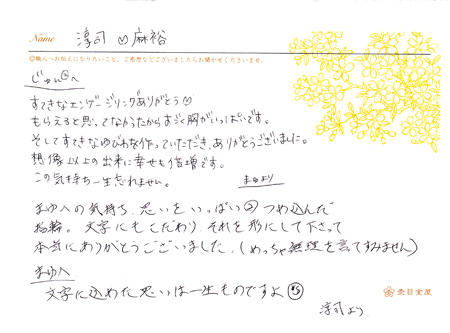 Name 淳司 ♡ 麻裕
◎職人へお伝えになりたいこと、ご感想などございましたらお聞かせくださいませ。
じゅんへ
すてきなエンゲージリングありがとう♡
もらえると思ってなかったからすごく胸がいっぱいです。
そしてすてきなゆびわを作っていただき、ありがとうございました。
想像以上の出来に幸せも倍増です。
この気持ち一生忘れません。
まゆより
まゆへの気持ち、思いをいっぱいつめ込んだ
指輪。文字にもこだわり、それを形にして下さって
本当にありがとうございました。(めっちゃ無理を言てすみません)
まゆへ
文字に込めた思いは一生ものですよ
淳司より
杢目金屋